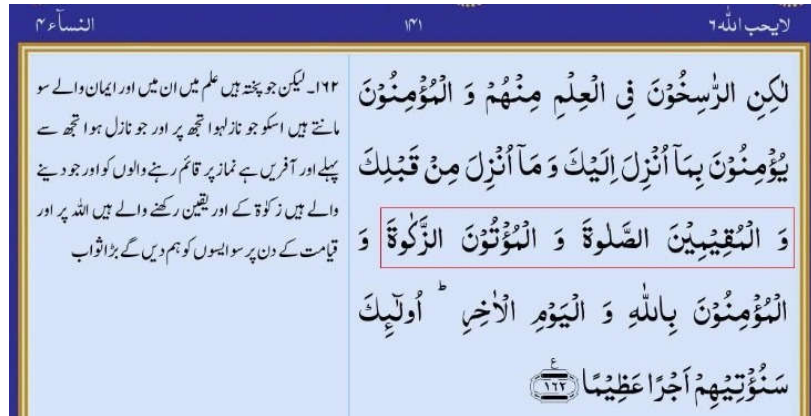 لایحب اللہ ۶
۱۴۱
النسآء ۴
لٰکِنِ الرّٰسِخُوۡنَ فِی الۡعِلۡمِ مِنۡہُمۡ وَ الۡمُؤۡمِنُوۡنَ
یُؤۡمِنُوۡنَ بِمَاۤ اُنۡزِلَ اِلَیۡکَ وَ مَاۤ اُنۡزِلَ مِنۡ قَبۡلِکَ
وَ الۡمُقِیۡمِیۡنَ الصَّلٰوۃَ وَ الۡمُؤۡتُوۡنَ الزَّکٰوۃَ وَ
الۡمُؤۡمِنُوۡنَ بِاللّٰہِ وَ الۡیَوۡمِ الۡاٰخِرِ ؕ اُولٰٓئِکَ
سَنُؤۡتِیۡہِمۡ اَجۡرًا عَظِیۡمًا ﴿۱۶۲﴾ ع
۱۶۲۔ لیکن جو پختہ ہیں علم میں ان میں اور ایمان والے سو
مانتے ہیں اسکو جو نازل ہوا تجھ پر اور جو نازل ہوا تجھ سے
پہلے اور آفریں ہے نماز پر قائم رہنے والوں کو اور جو دینے
والے ہیں زکوٰۃ کے اور یقین رکھنے والے ہیں اللہ پر اور
قیامت کے دن پر سو ایسوں کو ہم دیں گے بڑا ثواب